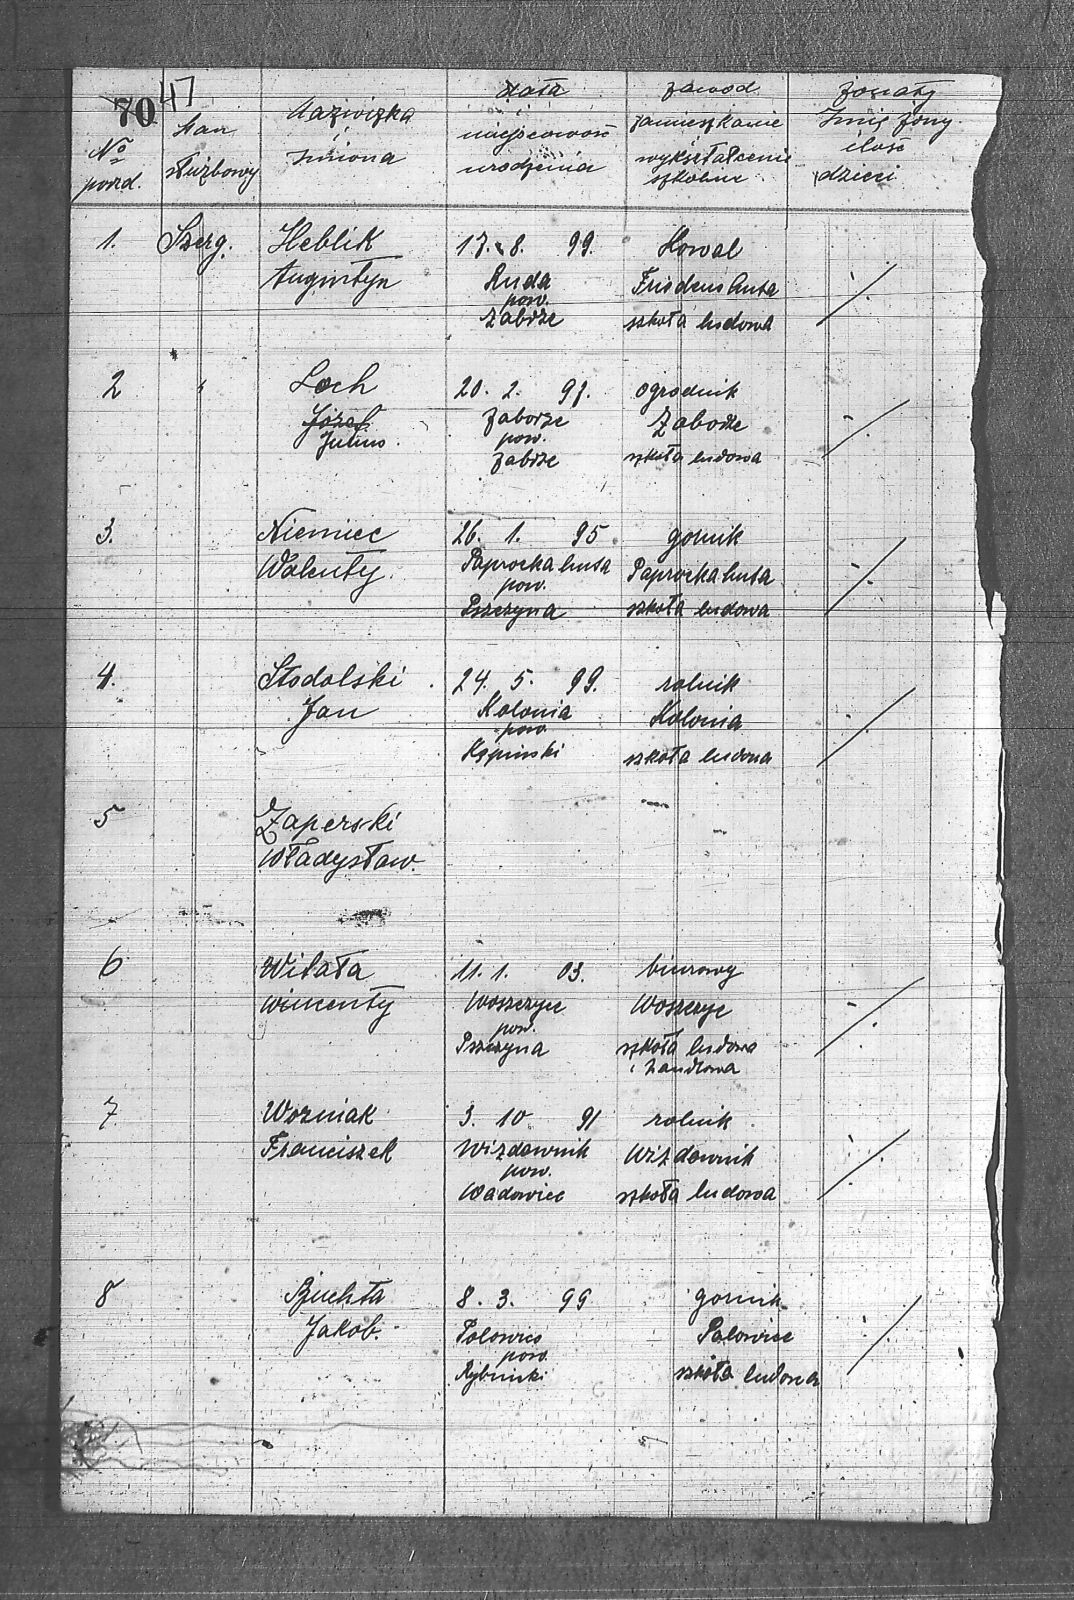 70 47
No porzd.
Stan służbowy
Nazwizka Imiona
Data miejscowość urodzenia
Zawod zamieszkanie wykształcenie szkolne
Żonaty Imię żony ilość dzieci
1. Szerg. Heblik 17. 8. 99. Kowal
Augustyn Ruda Friedenshuta
pow.
Zabrze szkoła ludowa
2 " Loch 20. 2. 97. ogrodnik
Józef Zaborze Zaborze
Julius. pow.
Zabrze szkoła ludowa
3. Niemiec 26. 1. 95 gornik
Walenty. Paprocka huta Paprocka huta
pow.
Pszczyna szkoła ludowa
4. Stodolski 24. 5. 99. rolnik
Jan Kolonia Kolonia
pow.
Kępinski szkoła ludowa
5 Zaperski
Władysław.
6 Witała 11. 1. 03. biurowy
Wincenty Woszczyce Woszczyc
pow.
Pszczyna szkoła ludowa
i handlowa
7. Wozniak 3. 10 91 rolnik
Franciszek Wizdownik Wizdownik
pow.
Wadowice szkoła ludowa
8 Buchta 8. 3. 99 gornik
Jakob. Polowice Palowice
pow.
Rybnicki szkoła ludowa